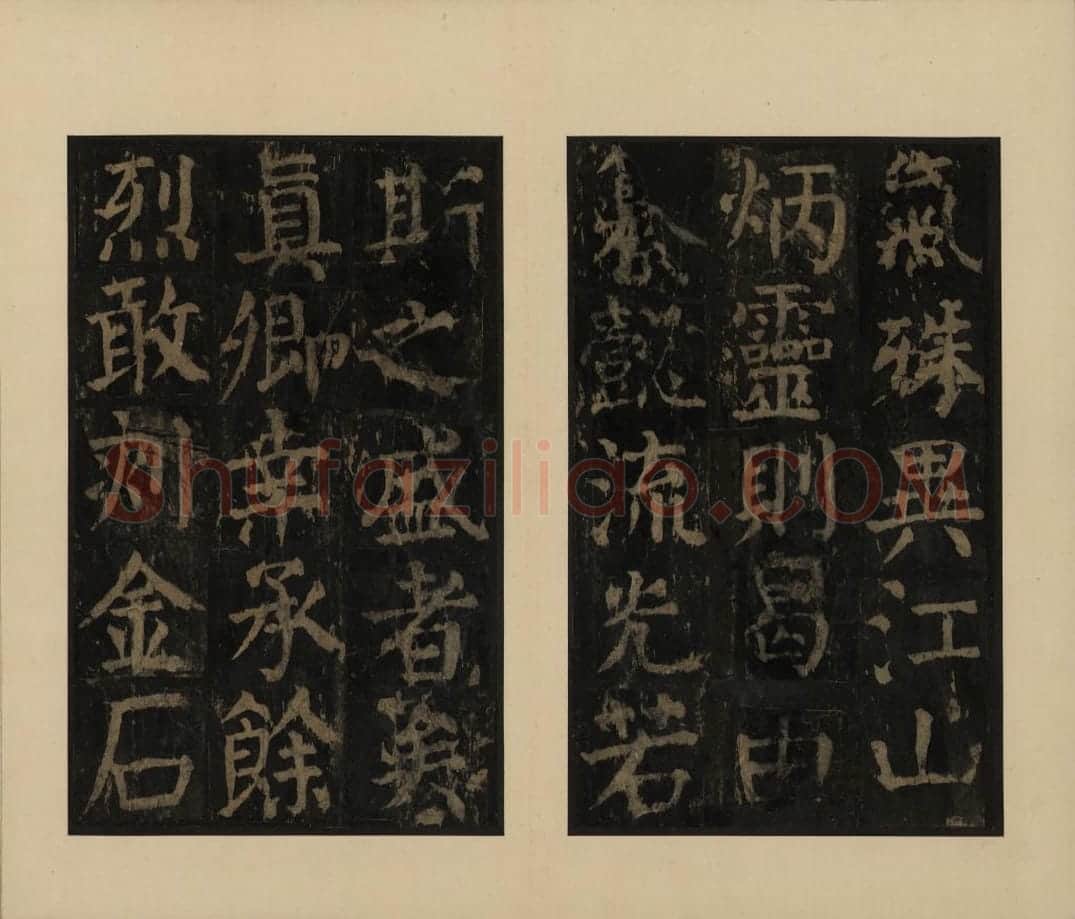 氣殊異江山
炳靈則曷由
纂懿流光若
斯之盛者矣
眞卿幸承餘
烈敢刻金石
Shufaziliao.COM